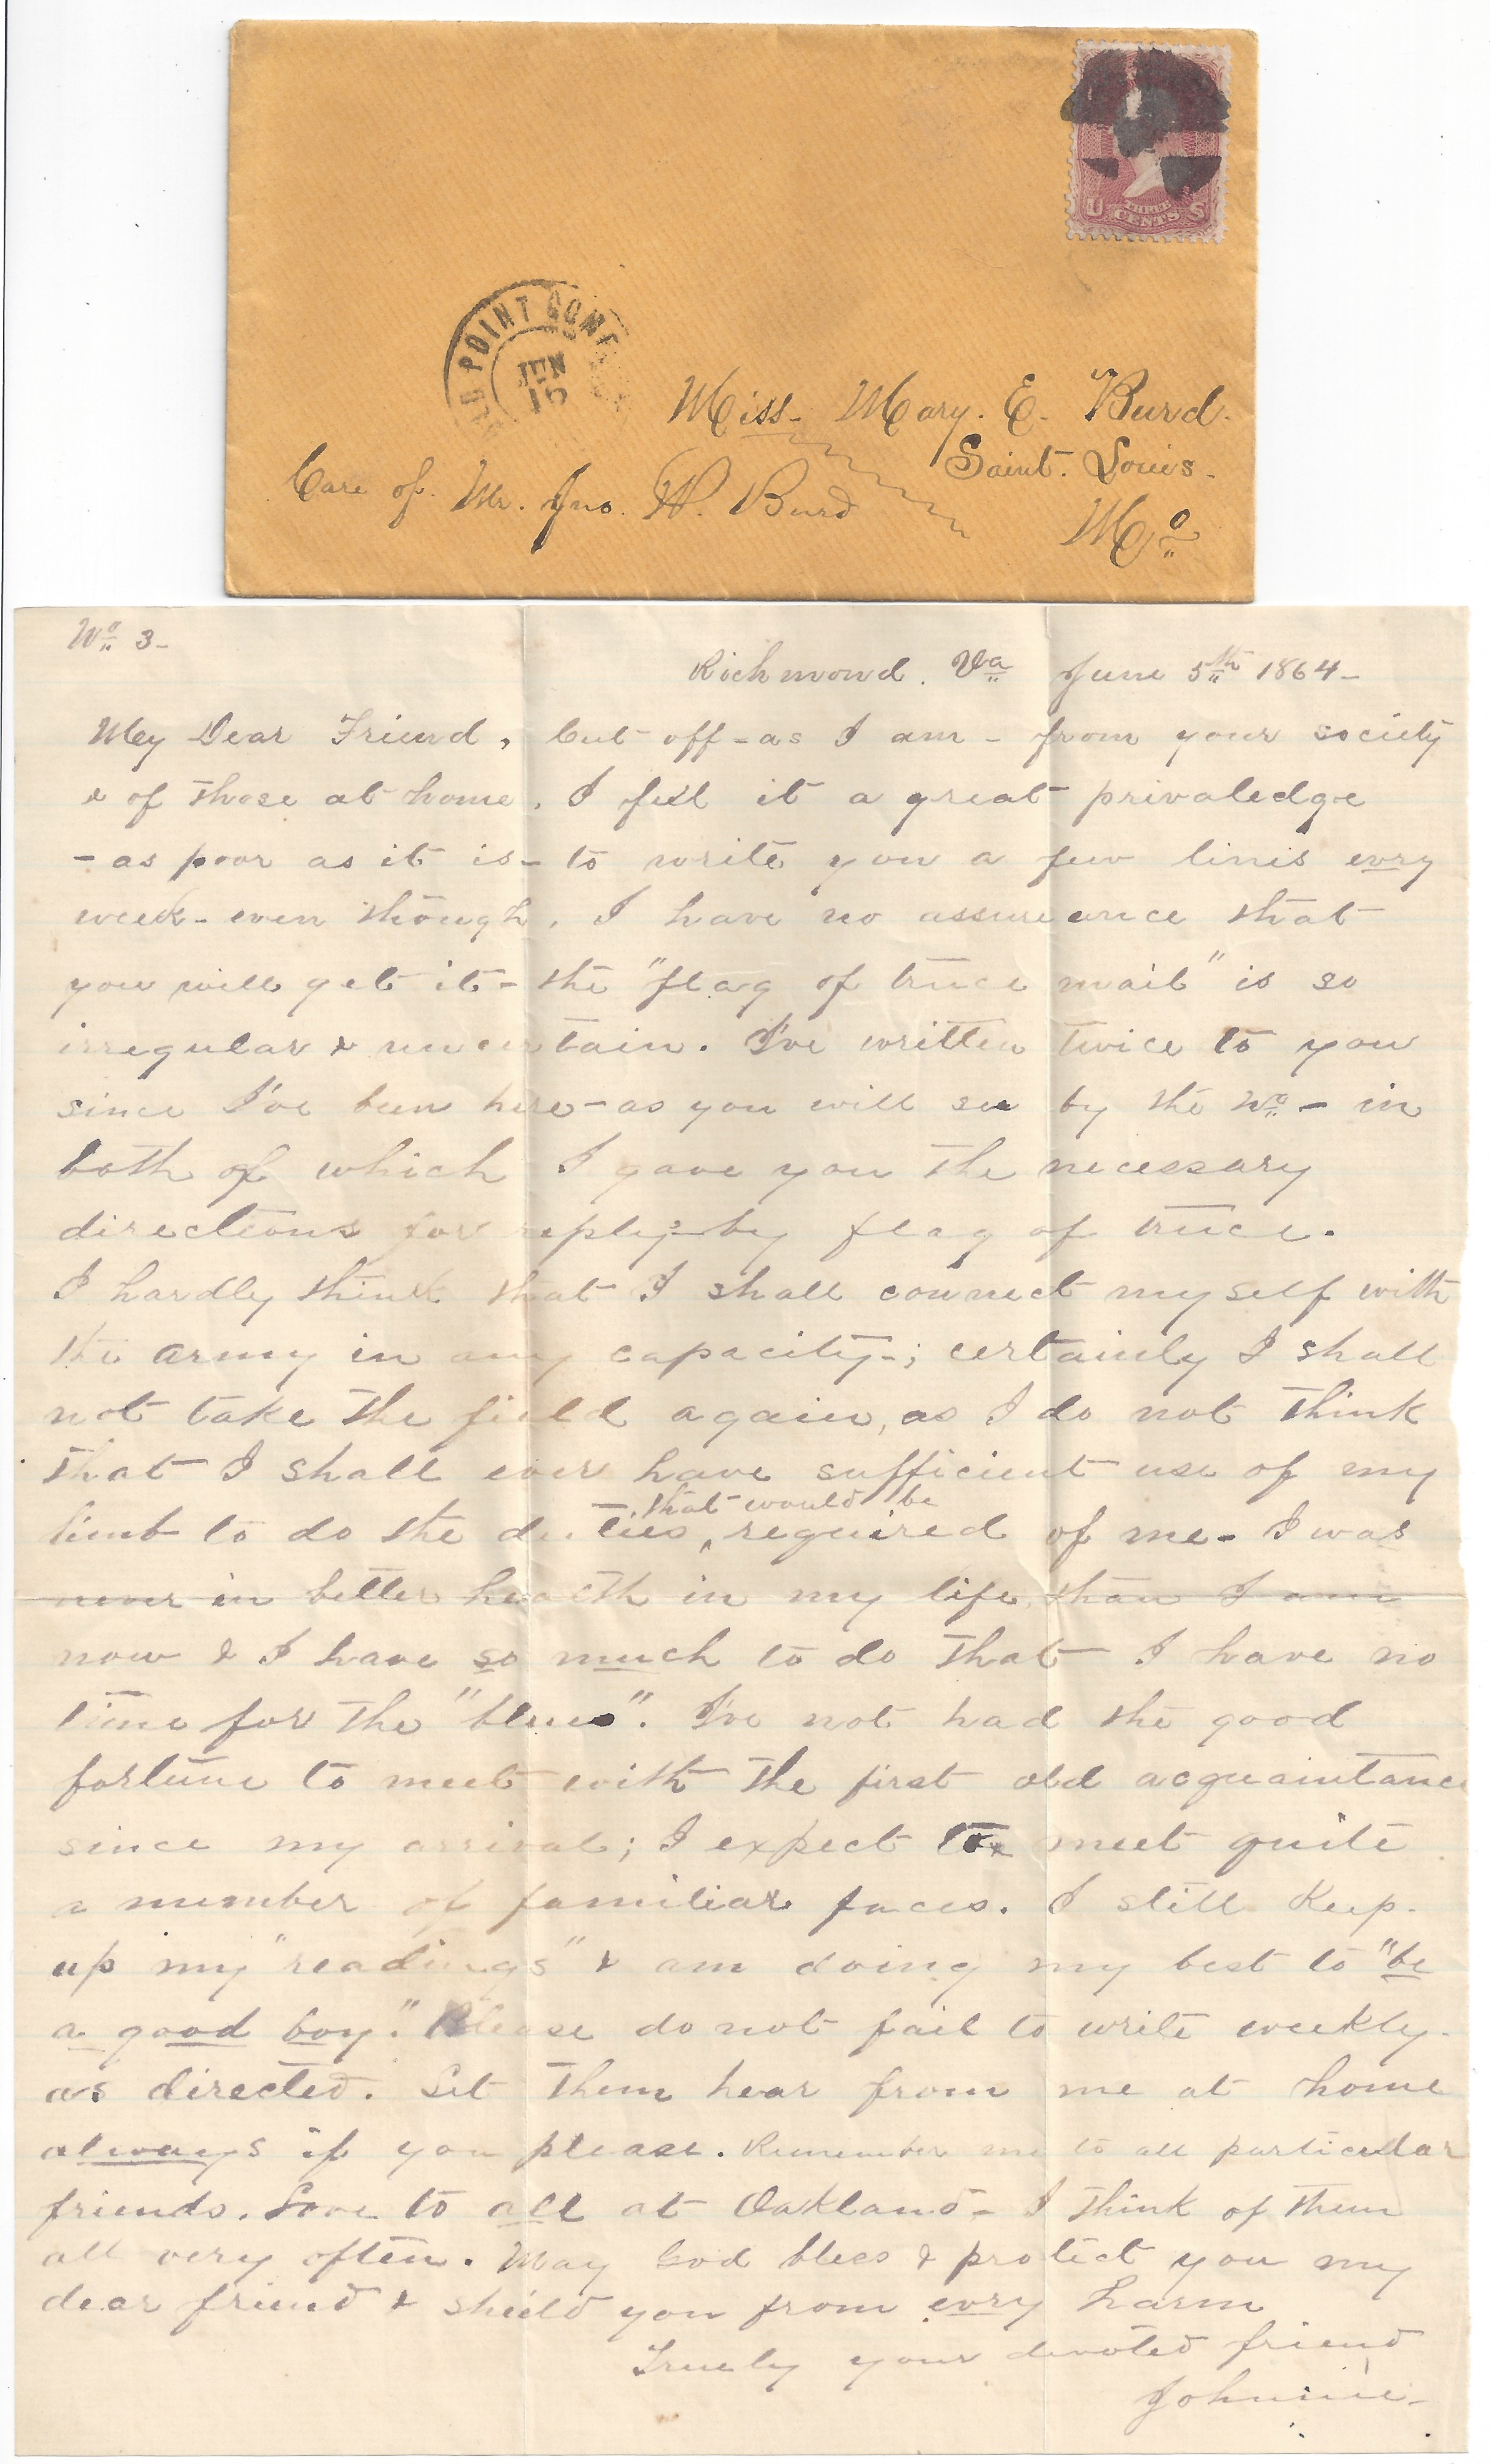 U THREE CENTS S
OLD POINT COMF
JUN
15
Miss. Mary. E. Burd.
Saint. Louis.
Care of. Mr. Jno. W. Burd
Mo
No 3-
Richmond. Va June 5th 1864-
My Dear Friend, Cut off-as I am- from your society
& of those at home. I feel it a great privaledge
- as poor as it is- to write you a few lines evry
week- even though, I have no assureance that
you will get it- the "flag of truce mail" is so
irregular & uncertain. I've written twice to you
since I've been here-as you will see by the No- in
both of which I gave you the necessary
directions for reply-by flag of truce.
I hardly think that I shall connect myself with
the army in any capacity-; certainly I shall
not take the field again, as I do not think
that I shall ever have sufficient use of my
limb to do the duties, that would be required of me- I was
never in better health in my life than I am
now & I have so much to do that I have no
time for the "blues". I've not had the good
fortune to meet with the first old acquaintance
since my arrival; I expect to meet quite
a number of familiar faces. I still Keep-
up my "readings" & am doing my best to "be
a good boy." Please do not fail to write weekly-
as directed. Let them hear from me at home
always if you please. Remember me to all particular
friends. Love to all at Oakland- I think of them
all very often. May God bless & protect you my
dear friend & shield you from evry harm
Truely your devoted friend
Johnnie-